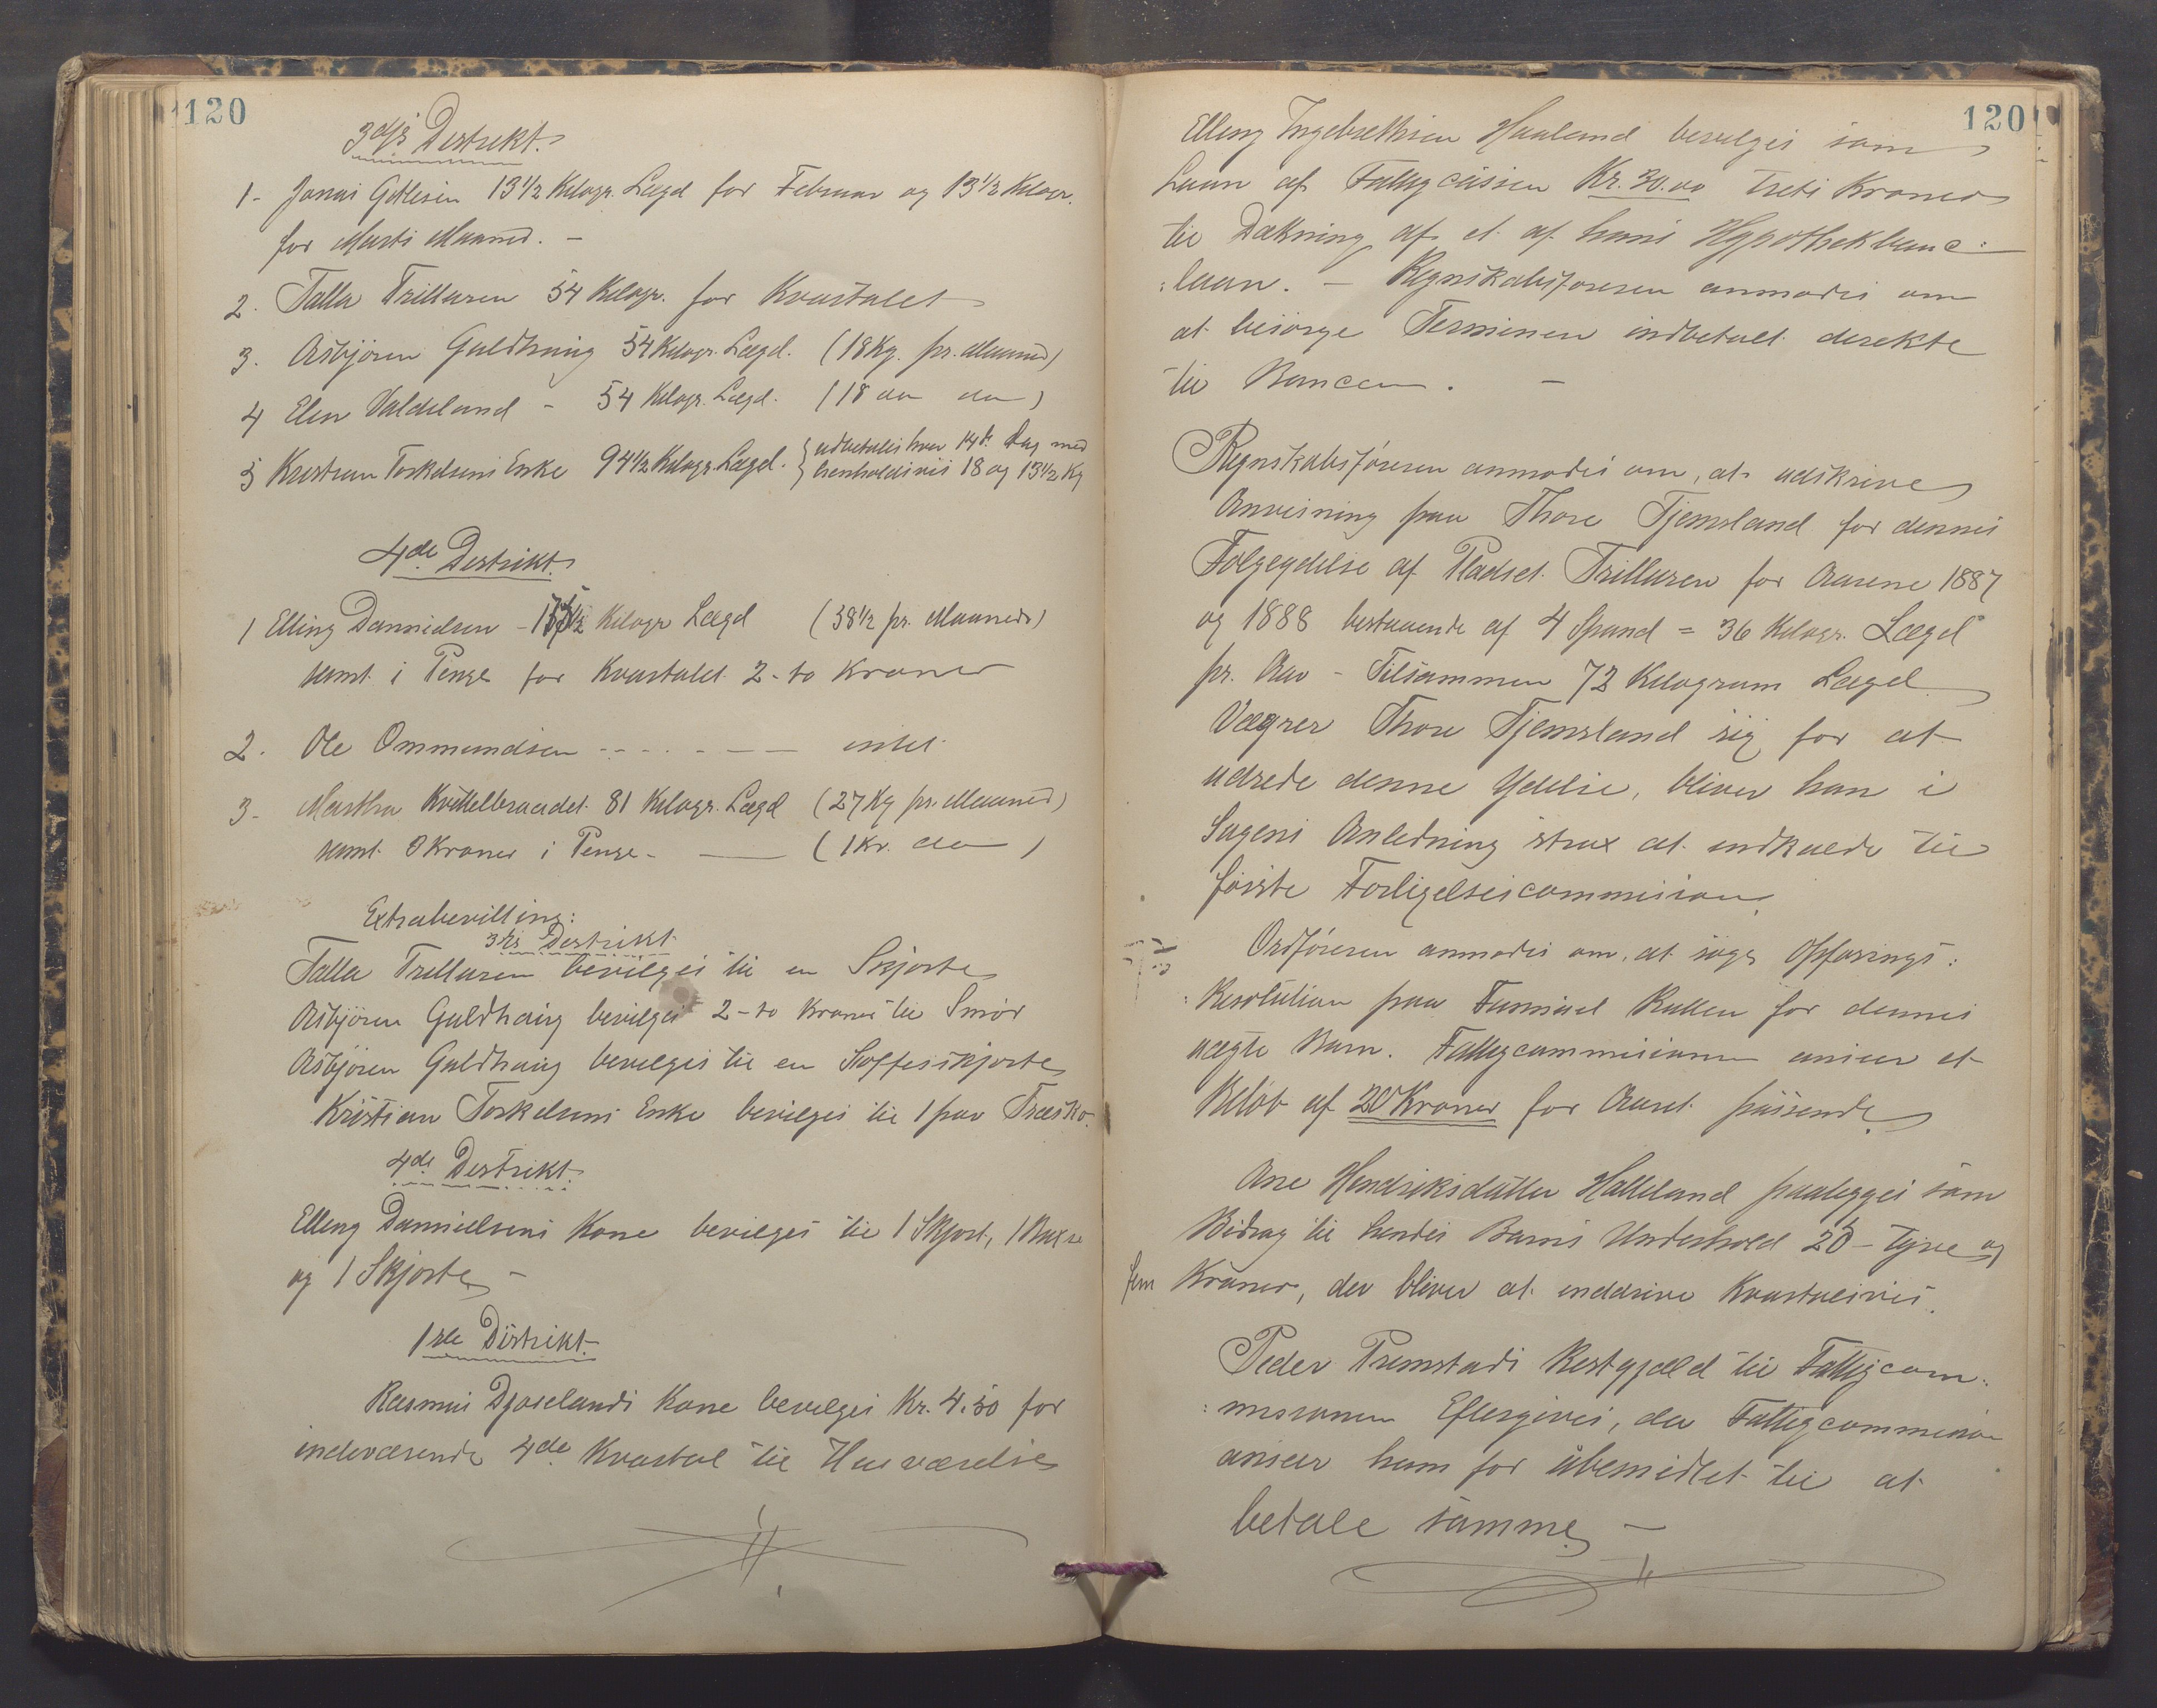 120
3die Destrikt.
1- Jonas Gitlesen 13 1/2 Kilogr. Lægd for Februar og 13 1/2 Kilogr.
for Marts Maaned. -
2. Talla Trillaren 54 Kilogr. for Kvartalet
3. Asbjören Guldhaug 54 Kilogr. Lægd. (18 Kg. pr. Maaned)
4 Elen Valdeland - 54 Kilogr. Lægd. (18 do do)
5 Kristian Torkelsens Enke 94 1/2 Kilogr. Lægd. { udbetales hver 14de Dag med
henholdsvis 18 og 13 1/2 Kg
4de Destrikt.
1 Elling Dannielsen - Kilogr Lægd (38 1/2 pr. Maaned)
samt i Penge for Kvartalet 2 - to Kroner
2. Ole Ommundsen - - - - - - intet
3. Martha Kvitlelbraadet 81 Kilogr. Lægd (27 Kg pr. Maaned)
samt 3 Kroner i Penge - — (1 Kr. do )
Extrabevilling:
3die Destrikt
Talla Trillaren bevilges til en Skjorte
Asbjören Guldhaug bevilges 2 - to Kroner til Smör
Asbjören Guldhaug bevilges til en Stoffesskjorte
Kristian Torkelsens Enke bevilges til 1 par Træsko.
4de Destrikt.
Elling Danielsens Kone bevilges til 1 Skjört, 1 Buxe
og 1 Skjorte -
1ste Distrikt.
Rasmus Djoselands Kone bevilges Kr. 4.50 for
indeværende 4de Kvartal til Husværelse
120
Elling Ingebrethsen Haaland bevilges som
Laan af Fattigcassen Kr. 30.00 treti Kroner
til Dækning af et af hans Hypothekbanc:
:laan. - Regnskabsföreren anmodes om
at besörge Terminen indbetalt direkte
til Bancen. -
Regnskabsföreren anmodes om, at udskrive
Anvisning paa Thore Tjemsland for dennes
Fölgeydelse af Pladset Trillaren for Aarene 1887
og 1888 bestaaende af 4 Spand = 36 Kilogr. Lægd
pr. Aar - Tilsammen 72 Kilogram Lægd
Vægrer Thore Tjemsland sig for at
udrede denne Ydelse, bliver han i
Sagens Anledning strax at indkalde til
förste Forligelsescommission.
Ordföreren anmodes om, at söge Opfostrings:
:Resolution paa Rallen for dennes
uægte Barn. Fattigcommissionen anser et
Belöb af 20 Kroner for Aaret passende.
Ane Hendriksdatter Halleland paalægges som
Bidrag til hendes Barns Underhold 25 - tyve og
fem Kroner, der bliver at inddrive Kvartalsvis.
Peder Tremstads Restgjæld til Fattigcom:
:missionen Eftergives, da Fattigcommission
anseer ham for ubemidlet til at
betale samme. -